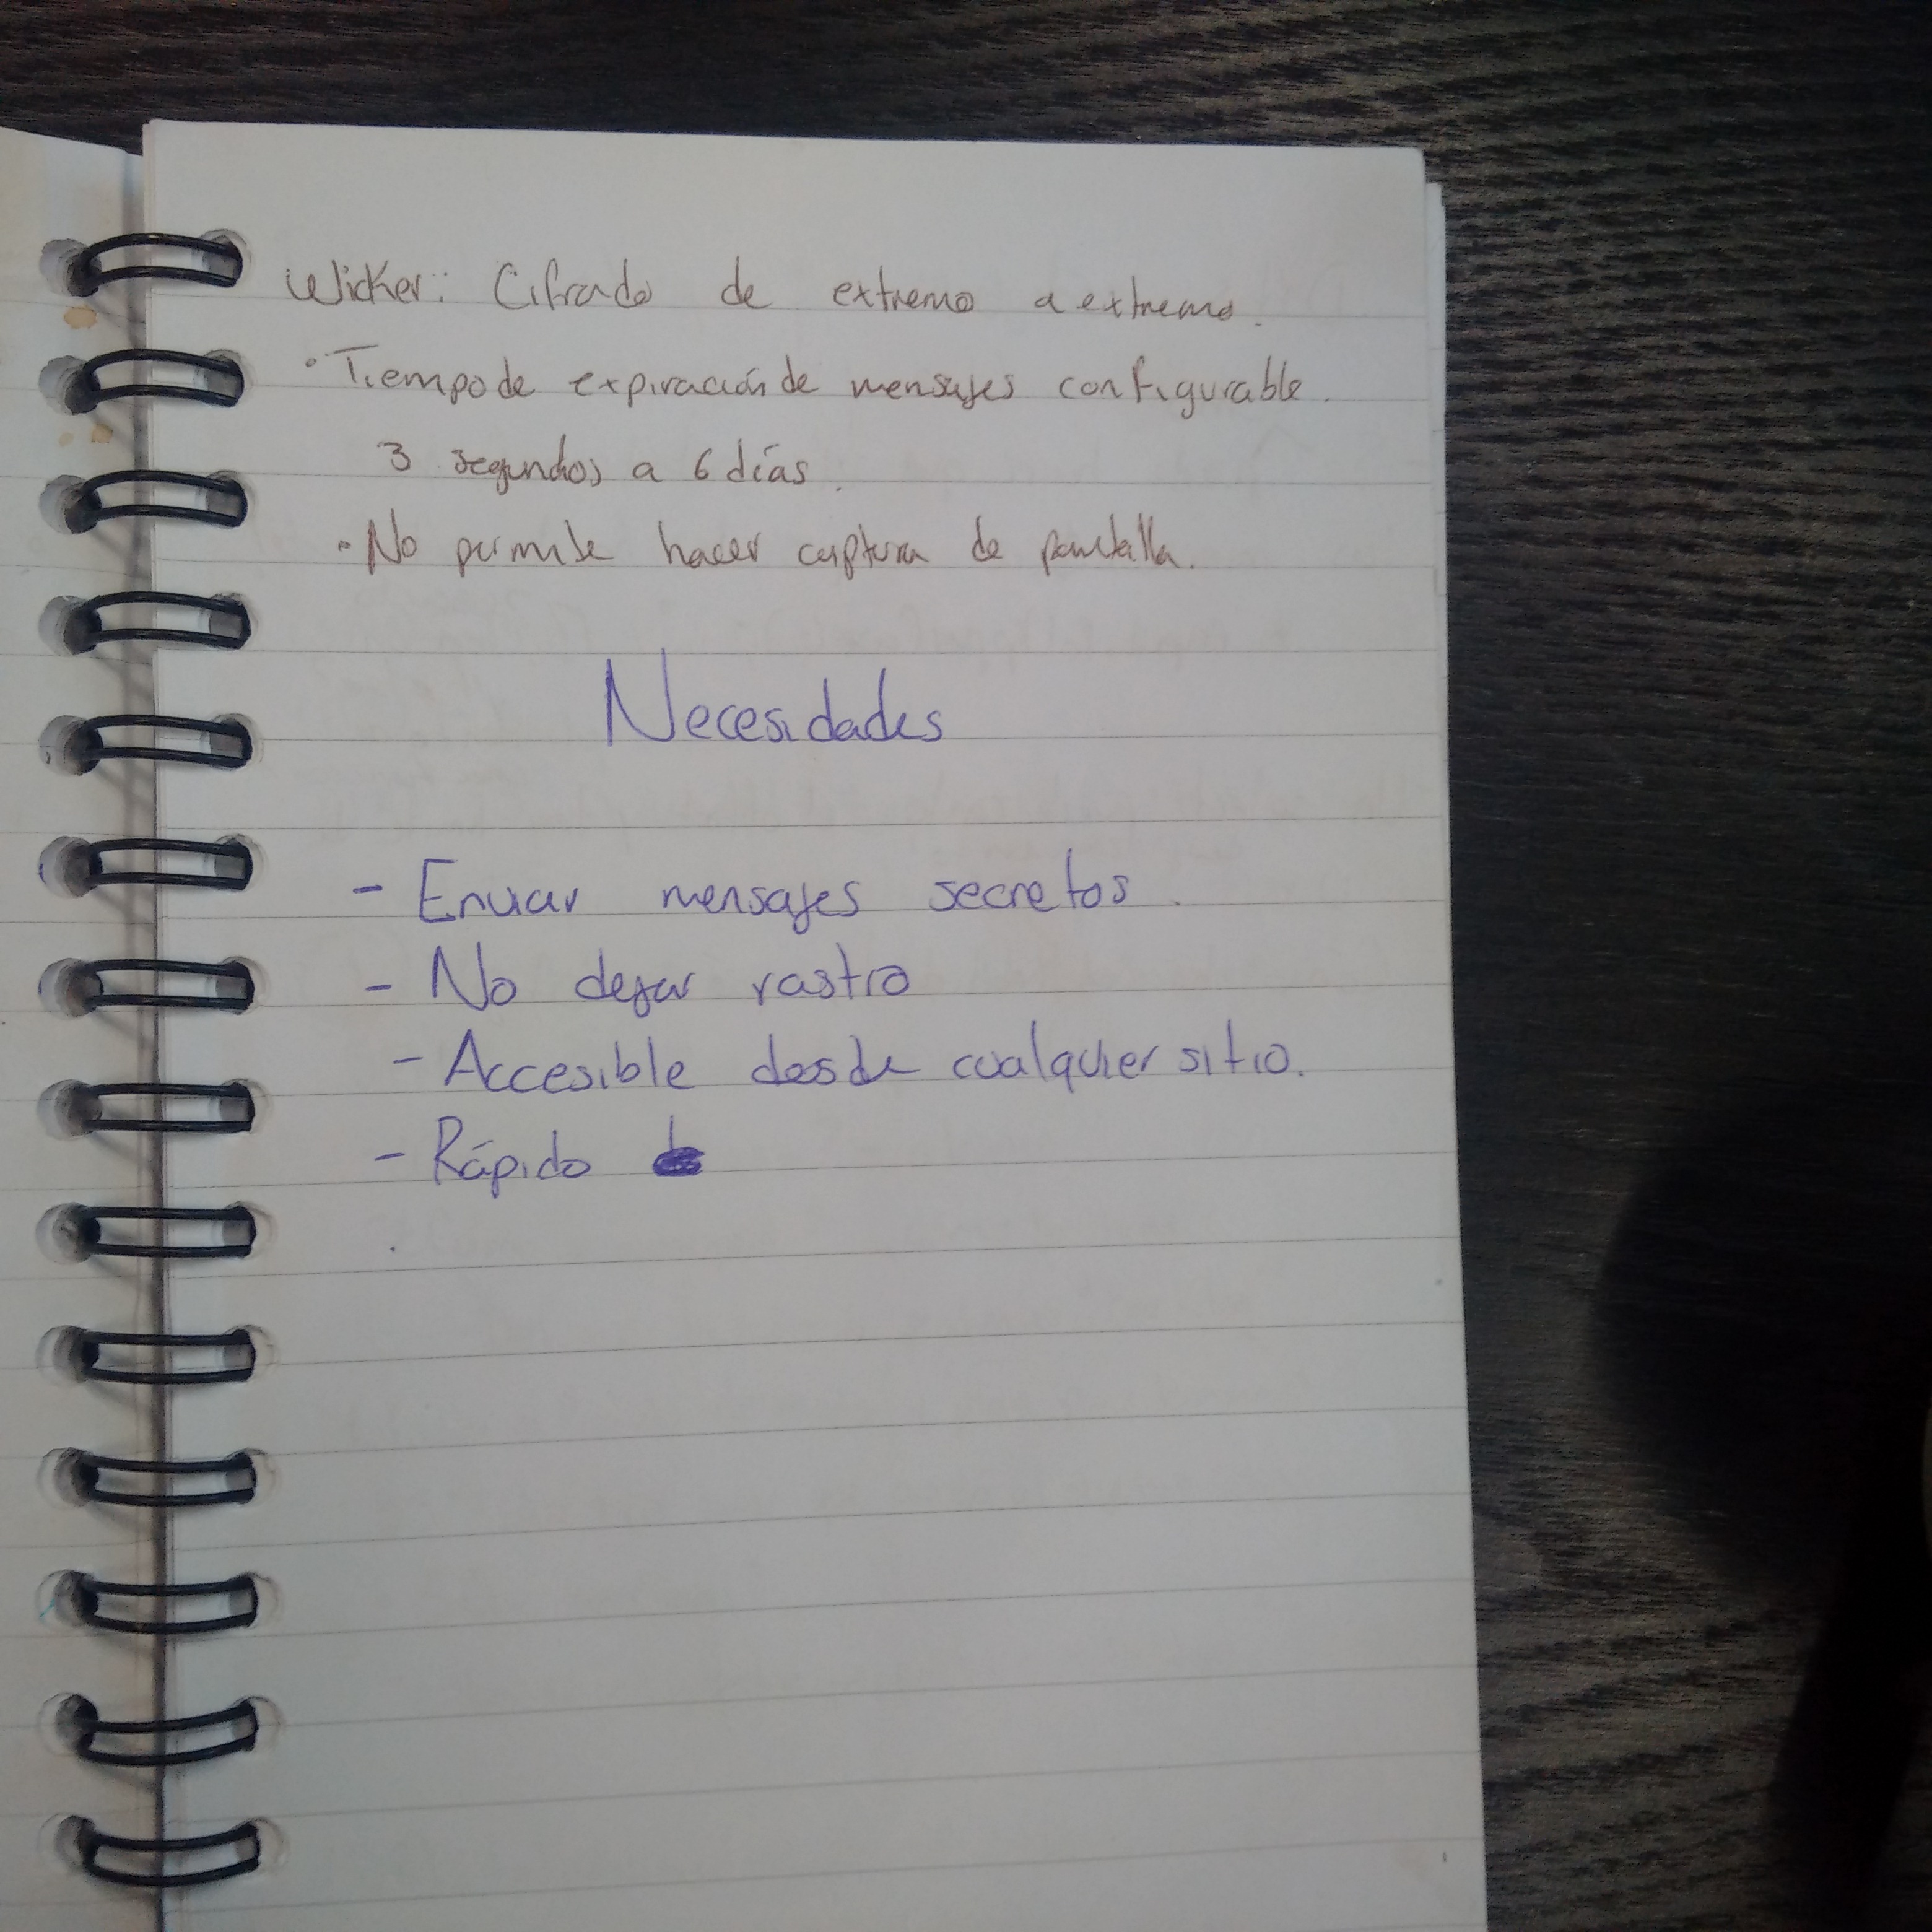 Wicker: Cifrado de extremo a extremo.
· Tiempo de expiración de mensajes configurable.
3 segundos a 6 días.
· No permite hacer captura de pantalla.
Necesidades
- Enviar mensajes secretos.
- No dejar rastro
- Accesible desde cualquier sitio.
- Rápido